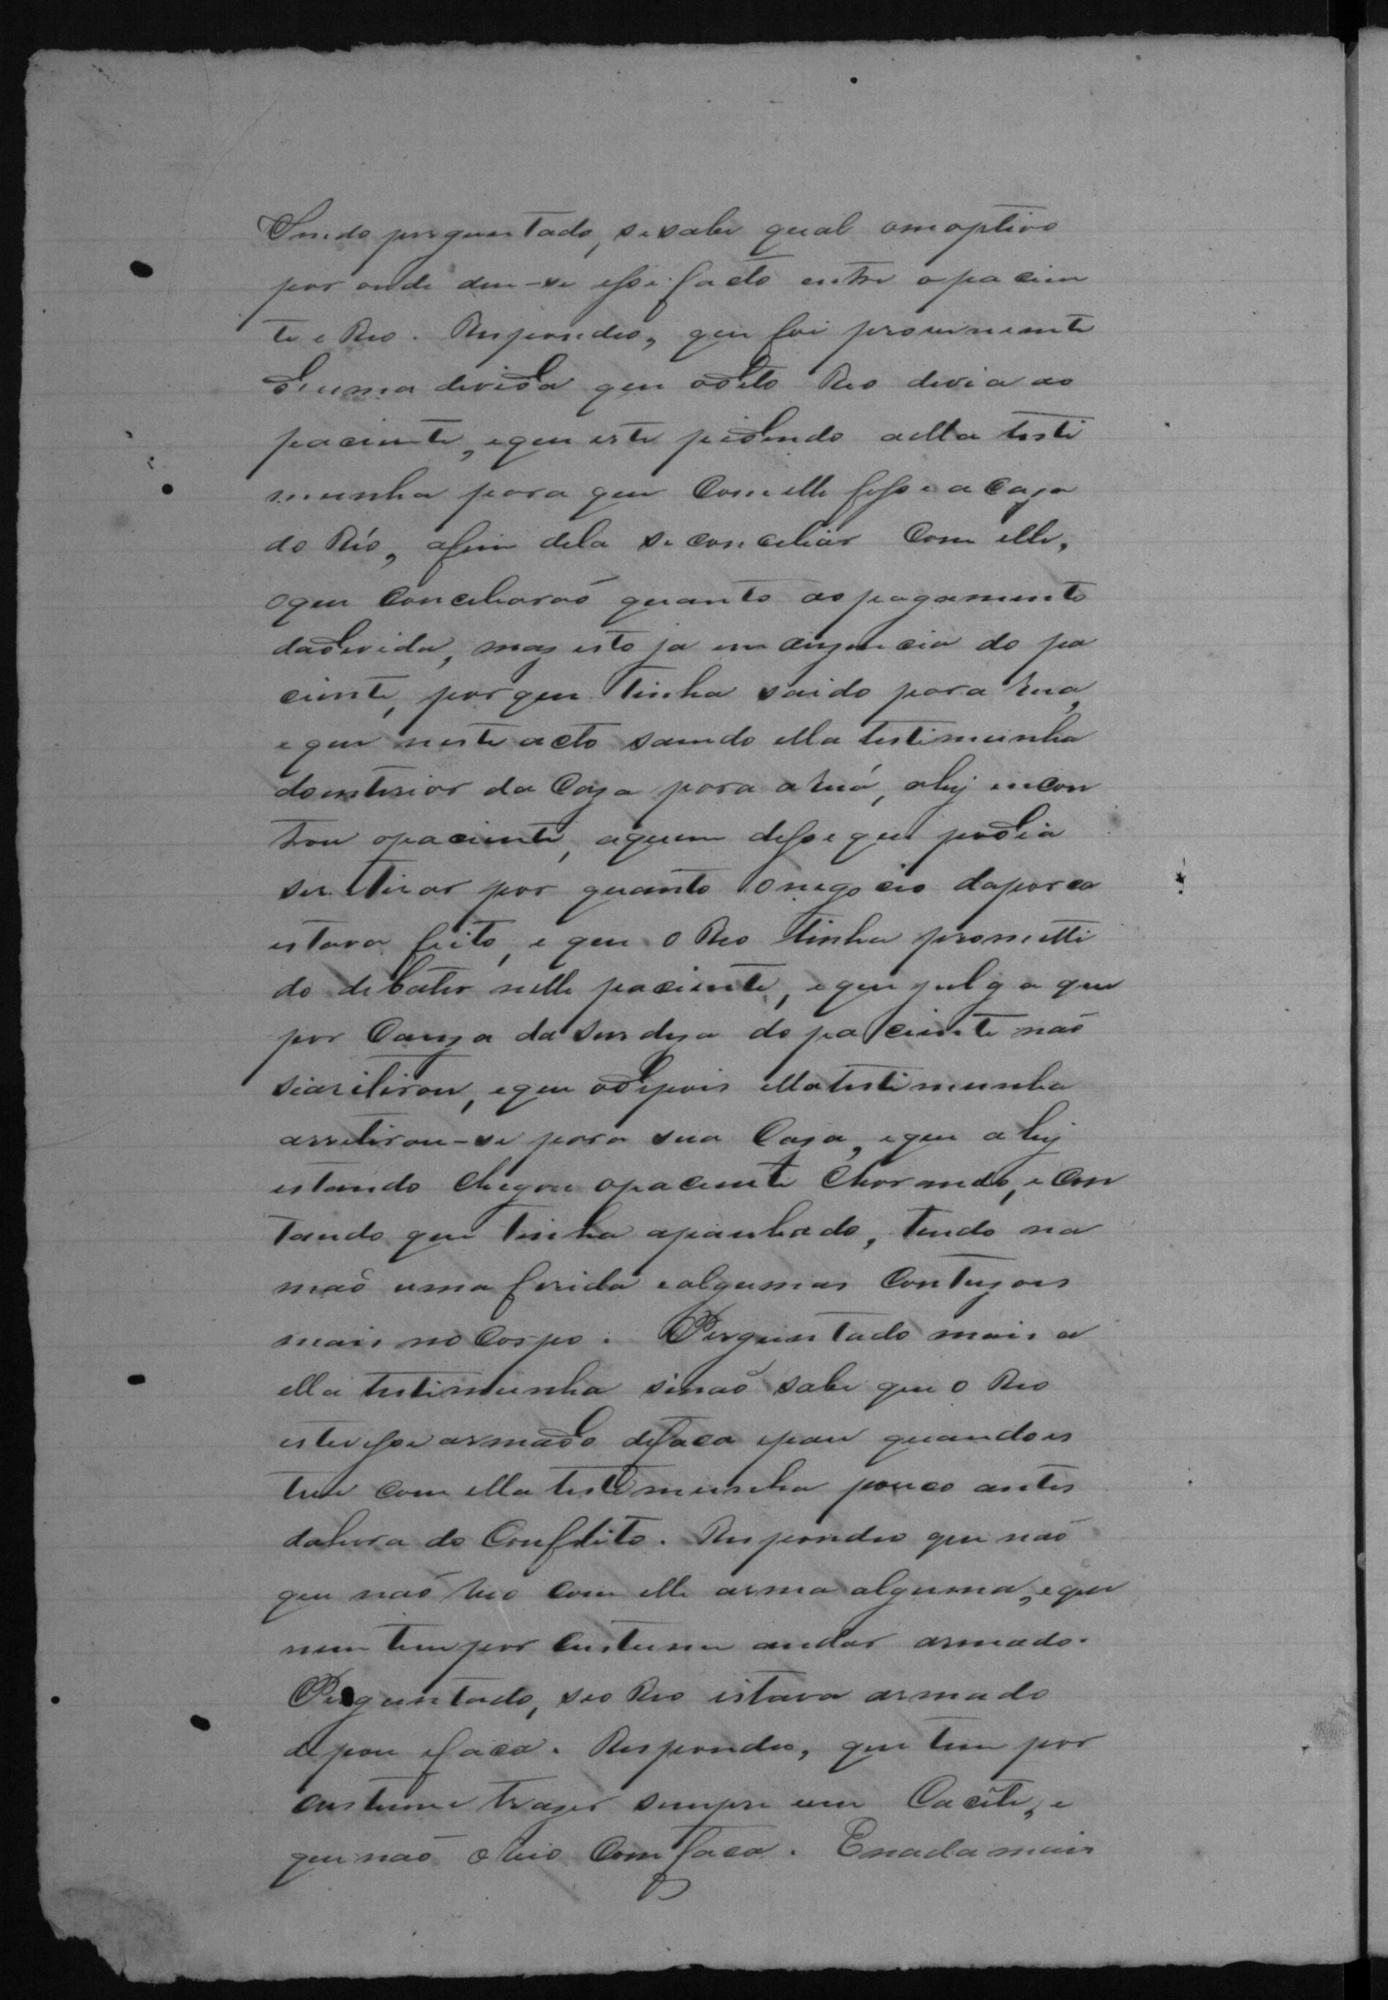 Sendo perguntado, se sabe qual omoptivo
por onde deu-se esse facto entre opacien
te e Reo. Respondeo, que foi proveniente
de uma devida que odito Reo devia ao
paciente, eque este pedindo aella teste
munha para que Com elle fosse a Caza
do Réo, afim dela se conceliar Com elle,
oque Conceliaraõ quanto ao pagamento
dadevida, mas isto ja em auzencia do pa
ciente, por que tinha saido para rua,
e que neste acto saindo ella testemunha
dointerior da Caza para a rua, ahy encon
trou opaciente, aquem disse que podia
se retirar por quanto o negocio daporca
estava feito, e que o Reo tinha prometti
do debater nelle paciente, eque julga que
por Cauza da surdeza do paciente naõ
searetirou, eque odepois ella testemunha
arretirou-se para sua Caza, eque ahy
estando Chegou opaciente Chorando, e Con
tando que tinha apanhado, tendo na
maõ uma ferida ealgumas Contuzois
mais no Corpo. Perguntado mais a
ella testemunha sinaõ sabe que o Reo
estevesse armado defaca epau quando es
teve com ella testemunha pouco antes
dahora do Conflito. Respondeo que naõ
que naõ vio Com elle arma alguma, eque
nem tem por Custume andar armado.
Perguntado, seo Reo estava armado
depau efaca. Respondeo, que tem por
custume trazer sempre um Cacête, e
que naõ o vio Com faca. Enada mais